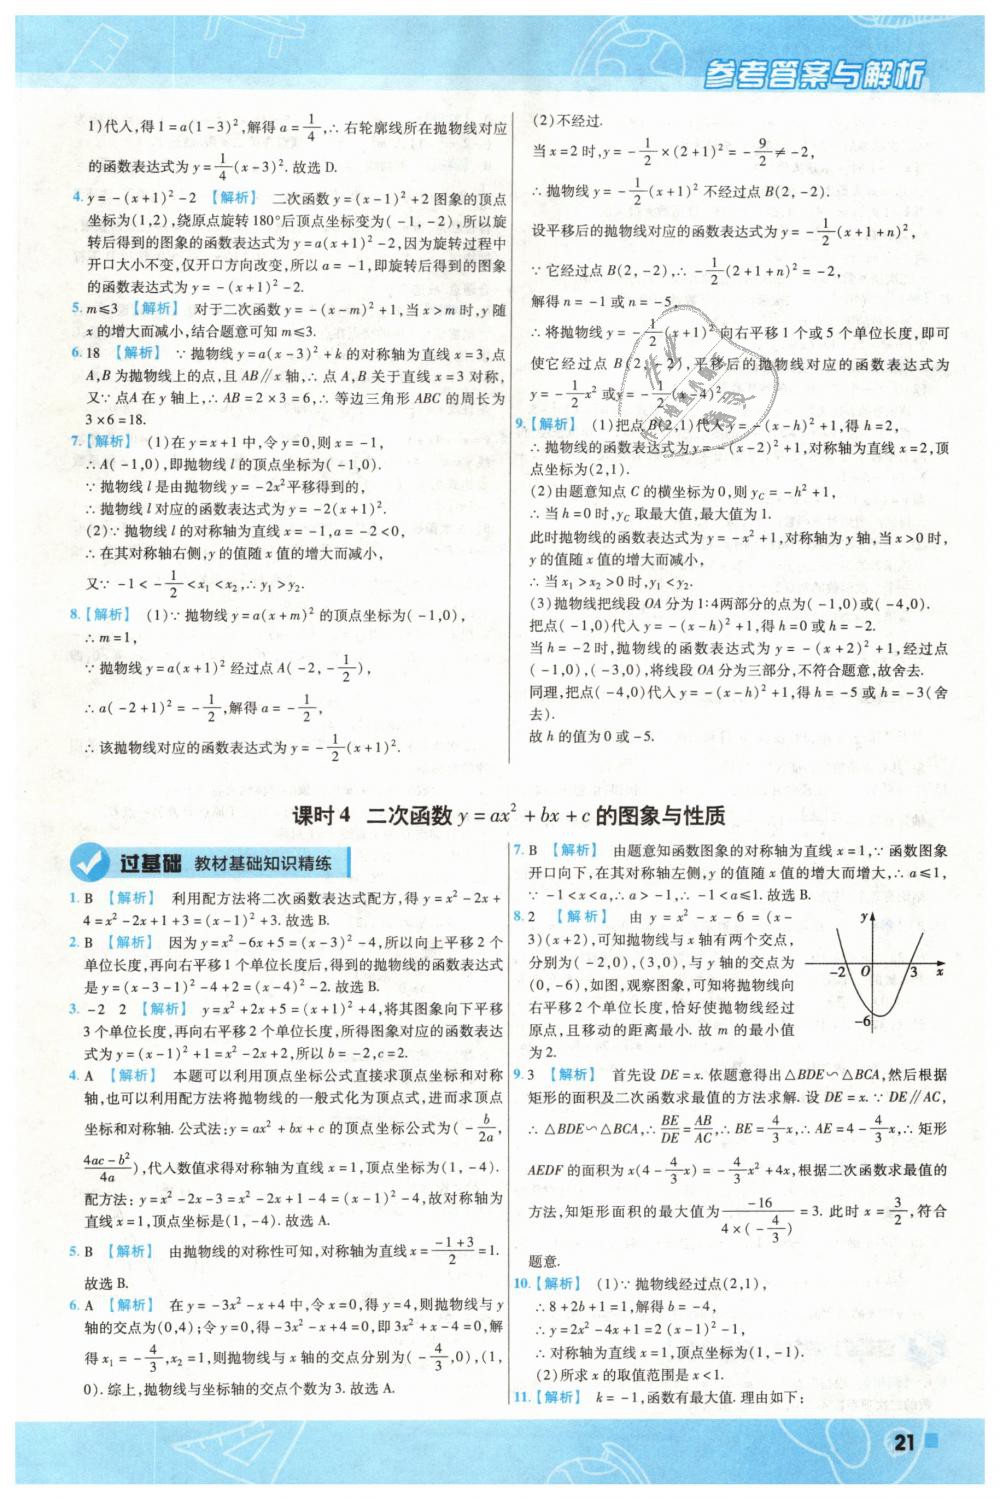 参考答案与解析
1)代入,得1=a(1-3)²,解得a=1/4,∴右轮廓线所在抛物线对应
的函数表达式为y=1/4(x-3)².故选D.
4.y=-(x+1)²-2 【解析】 二次函数y=(x-1)²+2图象的顶点
坐标为(1,2),绕原点旋转180°后顶点坐标变为(-1,-2),所以旋
转后得到的图象的函数表达式为y=a(x+1)²-2,因为旋转过程中
开口大小不变,仅开口方向改变,所以a=-1,即旋转后得到的图象
的函数表达式为y=-(x+1)²-2.
5.m≤3 【解析】 对于二次函数y=-(x-m)²+1,当x>m时,y随
x的增大而减小,结合题意可知m≤3.
6.18 【解析】 ∵抛物线y=a(x-3)²+k的对称轴为直线x=3,点
A,B为抛物线上的点,且AB∥x轴,∴点A,B关于直线x=3对称,
又∵点A在y轴上,∴AB=2×3=6,∴等边三角形ABC的周长为
3×6=18.
7.【解析】 (1)在y=x+1中,令y=0,则x=-1,
∴A(-1,0),即抛物线l的顶点坐标为(-1,0).
∵抛物线l是由抛物线y=-2x²平移得到的,
∴抛物线l对应的函数表达式为y=-2(x+1)².
(2)∵抛物线l的对称轴为直线x=-1,a=-2<0,
∴在其对称轴右侧,y的值随x值的增大而减小,
又∵-1<-1/2<x₁<x₂,∴y₁>y₂.
8.【解析】 (1)∵抛物线y=a(x+m)²的顶点坐标为(-1,0),
∴m=1,
∵抛物线y=a(x+1)²经过点A(-2,-1/2),
∴a(-2+1)²=-1/2,解得a=-1/2,
∴该抛物线对应的函数表达式为y=-1/2(x+1)².
(2)不经过.
当x=2时,y=-1/2×(2+1)²=-9/2≠-2,
∴抛物线y=-1/2(x+1)²不经过点B(2,-2).
设平移后的抛物线对应的函数表达式为y=-1/2(x+1+n)²,
∵它经过点B(2,-2),∴-1/2(2+1+n)²=-2,
解得n=-1或n=-5,
∴将抛物线y=-1/2(x+1)²向右平移1个或5个单位长度,即可
使它经过点B(2,-2),平移后的抛物线对应的函数表达式为
y=-1/2x²或y=-1/2(x-4)².
9.【解析】 (1)把点B(2,1)代入y=-(x-h)²+1,得h=2,
∴抛物线的函数表达式为y=-(x-2)²+1,对称轴为直线x=2,顶
点坐标为(2,1).
(2)由题意知点C的横坐标为0,则y_C=-h²+1,
∴当h=0时,y_C取最大值,最大值为1.
此时抛物线的函数表达式为y=-x²+1,对称轴为y轴,当x>0时,
y的值随x值的增大而减小,
∴当x₁>x₂>0时,y₁<y₂.
(3)抛物线把线段OA分为1:4两部分的点为(-1,0)或(-4,0).
把点(-1,0)代入y=-(x-h)²+1,得h=0或h=-2.
当h=-2时,抛物线的函数表达式为y=-(x+2)²+1,经过点
(-1,0),(-3,0),将线段OA分为三部分,不符合题意,故舍去.
同理,把点(-4,0)代入y=-(x-h)²+1,得h=-5或h=-3(舍
去).
故h的值为0或-5.
课时4 二次函数y=ax²+bx+c的图象与性质
过基础 教材基础知识精练
1. B 【解析】 利用配方法将二次函数表达式配方,得y=x²-2x+
4=x²-2x+1+3=(x-1)²+3.故选B.
2. B 【解析】 因为y=x²-6x+5=(x-3)²-4,所以向上平移2个
单位长度,再向右平移1个单位长度后,得到的抛物线的函数表达式
是y=(x-3-1)²-4+2=(x-4)²-2.故选B.
3. -2 2 【解析】 y=x²+2x+5=(x+1)²+4,将其图象向下平移
3个单位长度,再向右平移2个单位长度,所得图象对应的函数表达
式为y=(x-1)²+1=x²-2x+2,所以b=-2,c=2.
4. A 【解析】 本题可以利用顶点坐标公式直接求顶点坐标和对称
轴,也可以利用配方法将抛物线的一般式化为顶点式,进而求顶点
坐标和对称轴.公式法:y=ax²+bx+c的顶点坐标公式为(-b/2a,
(4ac-b²)/4a),代入数值求得对称轴为直线x=1,顶点坐标为(1,-4).
配方法:y=x²-2x-3=x²-2x+1-4=(x-1)²-4,故对称轴为
直线x=1,顶点坐标是(1,-4).故选A.
5. B 【解析】 由抛物线的对称性可知,对称轴为直线x=(-1+3)/2=1.
故选B.
6. A 【解析】 在y=-3x²-x+4中,令x=0,得y=4,则抛物线与y
轴的交点为(0,4);令y=0,得-3x²-x+4=0,即3x²+x-4=0,解
得x₁=-4/3,x₂=1,则抛物线与x轴的交点分别为(-4/3,0),(1,
0).综上,抛物线与坐标轴的交点个数为3.故选A.
7. B 【解析】 由题意知函数图象的对称轴为直线x=1,∵函数图象
开口向下,在其对称轴左侧,y的值随x值的增大而增大,∴a≤1,
∵-1<x<a,∴a>-1,∴-1<a≤1.故选B.
8. 2 【解析】 由y=x²-x-6=(x-
3)(x+2),可知抛物线与x轴有两个交点,
分别为(-2,0),(3,0),与y轴的交点为
(0,-6),如图,观察图象,可知将抛物线向
右平移2个单位长度,恰好使抛物线经过
原点,且移动的距离最小.故m的最小值
为2.
y
-2 O 3 x
-6
9. 3 【解析】 首先设DE=x.依题意得出△BDE∽△BCA,然后根据
矩形的面积及二次函数求最值的方法求解.设DE=x.∵DE∥AC,
∴△BDE∽△BCA,∴BE/DE=AB/AC,∴BE=4/3x,∴AE=4-4/3x,∴矩形
AEDF的面积为x(4-4/3x)=-4/3x²+4x,根据二次函数求最值的
方法,知矩形面积的最大值为-16/(4×(-4/3))=3.此时x=3/2,符合
题意.
10.【解析】 (1)∵抛物线经过点(2,1),
∴8+2b+1=1,解得b=-4,
∴y=2x²-4x+1=2(x-1)²-1,
∴对称轴为直线x=1,顶点坐标为(1,-1).
(2)所求x的取值范围是x<1.
11.【解析】 k=-1,函数有最大值.理由如下:
21